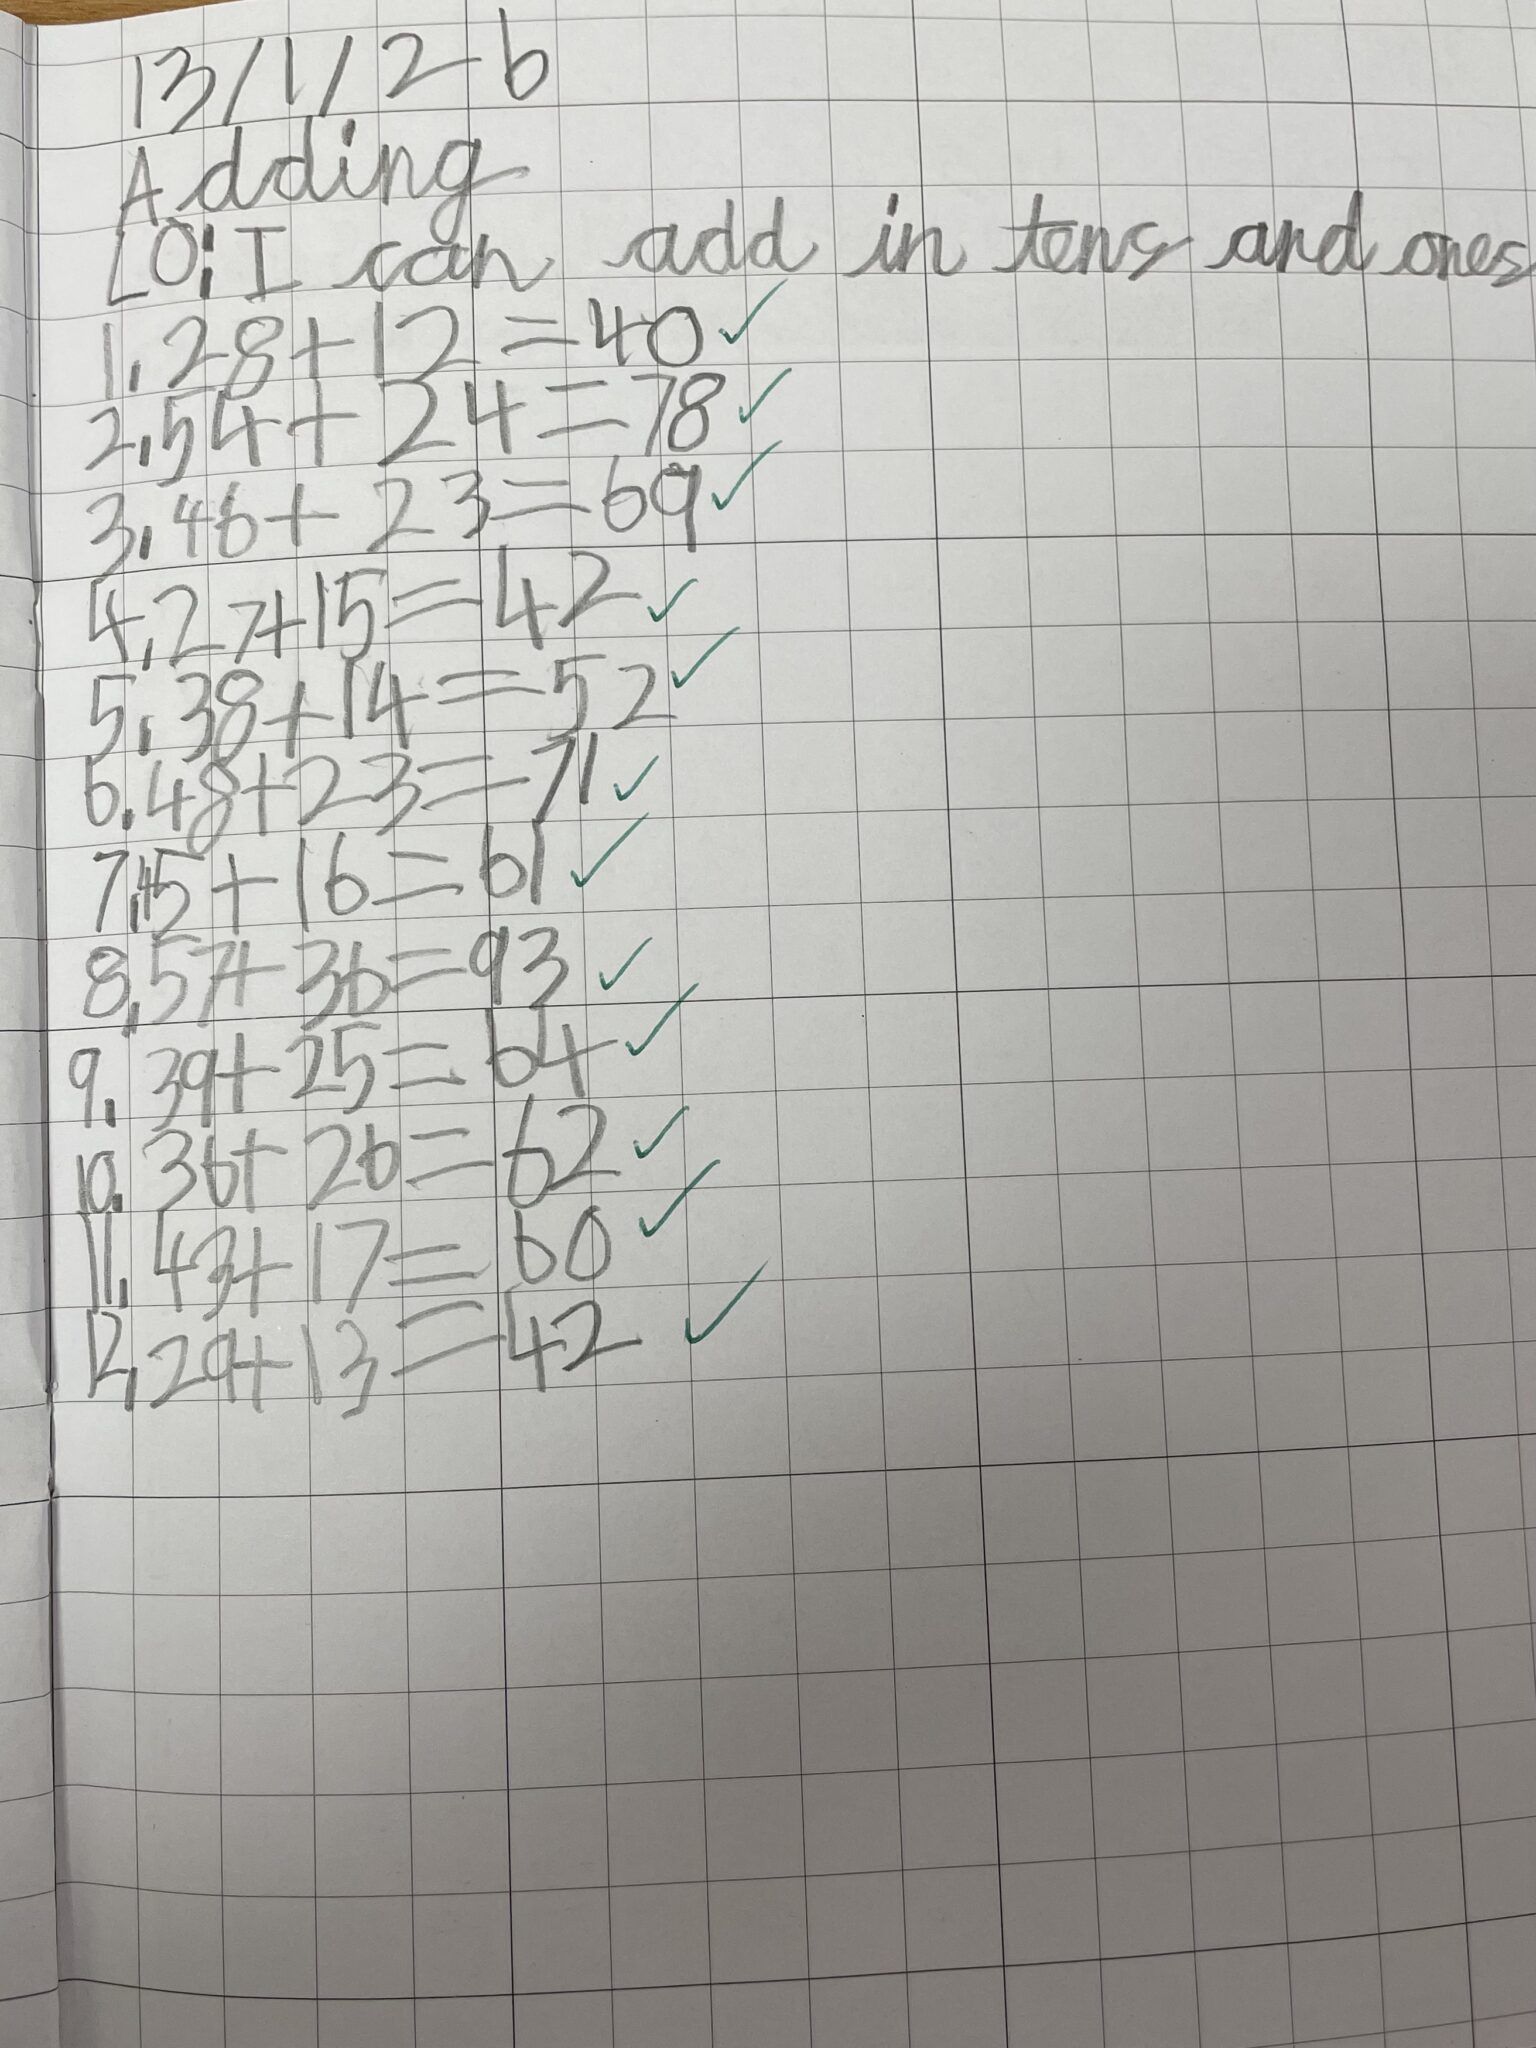 13/1/26
Adding
LO: I can add in tens and ones
1. 28+12=40 ✓
2. 54+24=78 ✓
3. 46+23=69 ✓
4. 27+15=42 ✓
5. 38+14=52 ✓
6. 48+23=71 ✓
7. 45+16=61 ✓
8. 57+36=93 ✓
9. 39+25=64 ✓
10. 36+26=62 ✓
11. 43+17=60 ✓
12. 29+13=42 ✓